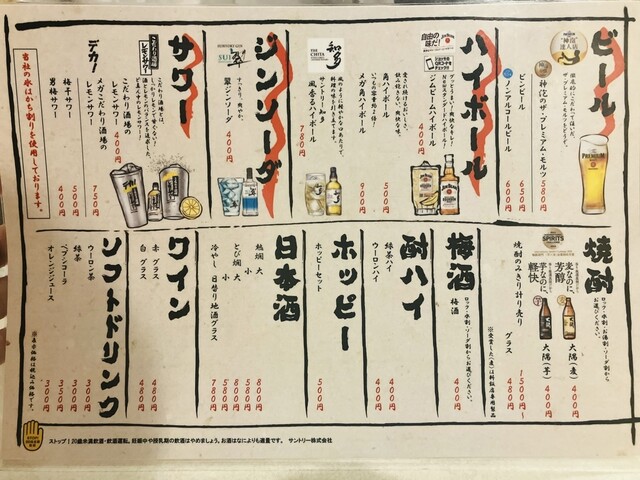 ビール
神泡
達人店
徹底的にこだわって注いだ、
ザ・プレミアム・モルツをどうぞ。
神泡のザ・プレミアム・モルツ 580円
ビンビール 650円
ノンアルコールビール 500円
PREMIUM
ハイボール
自由の味だ!
JIM BEAM
角ハイボール 500円
メガ角ハイボール 900円
ジムビームハイボール 400円
知多
THE CHITA
サントリー知多
風香るハイボール 780円
ジンソーダ
SUI
翠
すっきりと、爽やか。
翠ジンソーダ 400円
サワー
こだわり酒場の
レモンサワー
こだわり酒場の
レモンサワー 400円
デカ!
メガこだわり酒場の
レモンサワー 750円
梅干サワー 500円
男梅サワー 400円
当社の氷はかち割りを使用しております。
焼酎
SPIRITS
ロック・水割・お湯割・ソーダ割から
お選びください。
麦なのに、芳醇
芋なのに、軽快
大隅(麦) 400円
大隅(芋) 400円
焼酎のみきり計り売り 1500円〜
グラス 480円
梅酒
ロック・水割・ソーダ割からお選びください。
梅酒 400円
酎ハイ
緑茶ハイ 400円
ウーロンハイ 400円
ホッピー
ホッピーセット 500円
日本酒
熱燗 大 800円
小 500円
とび燗 大 850円
小 580円
冷やし 日替り地酒グラス 780円
ワイン
赤 グラス 480円
白 グラス 480円
ソフトドリンク
ウーロン茶 300円
緑茶 300円
ペプシコーラ 350円
オレンジジュース 300円
※表示価格は税込み価格です。
ストップ!20歳未満飲酒・飲酒運転。妊娠中や授乳期の飲酒はやめましょう。お酒はなによりも適量です。 サントリー株式会社